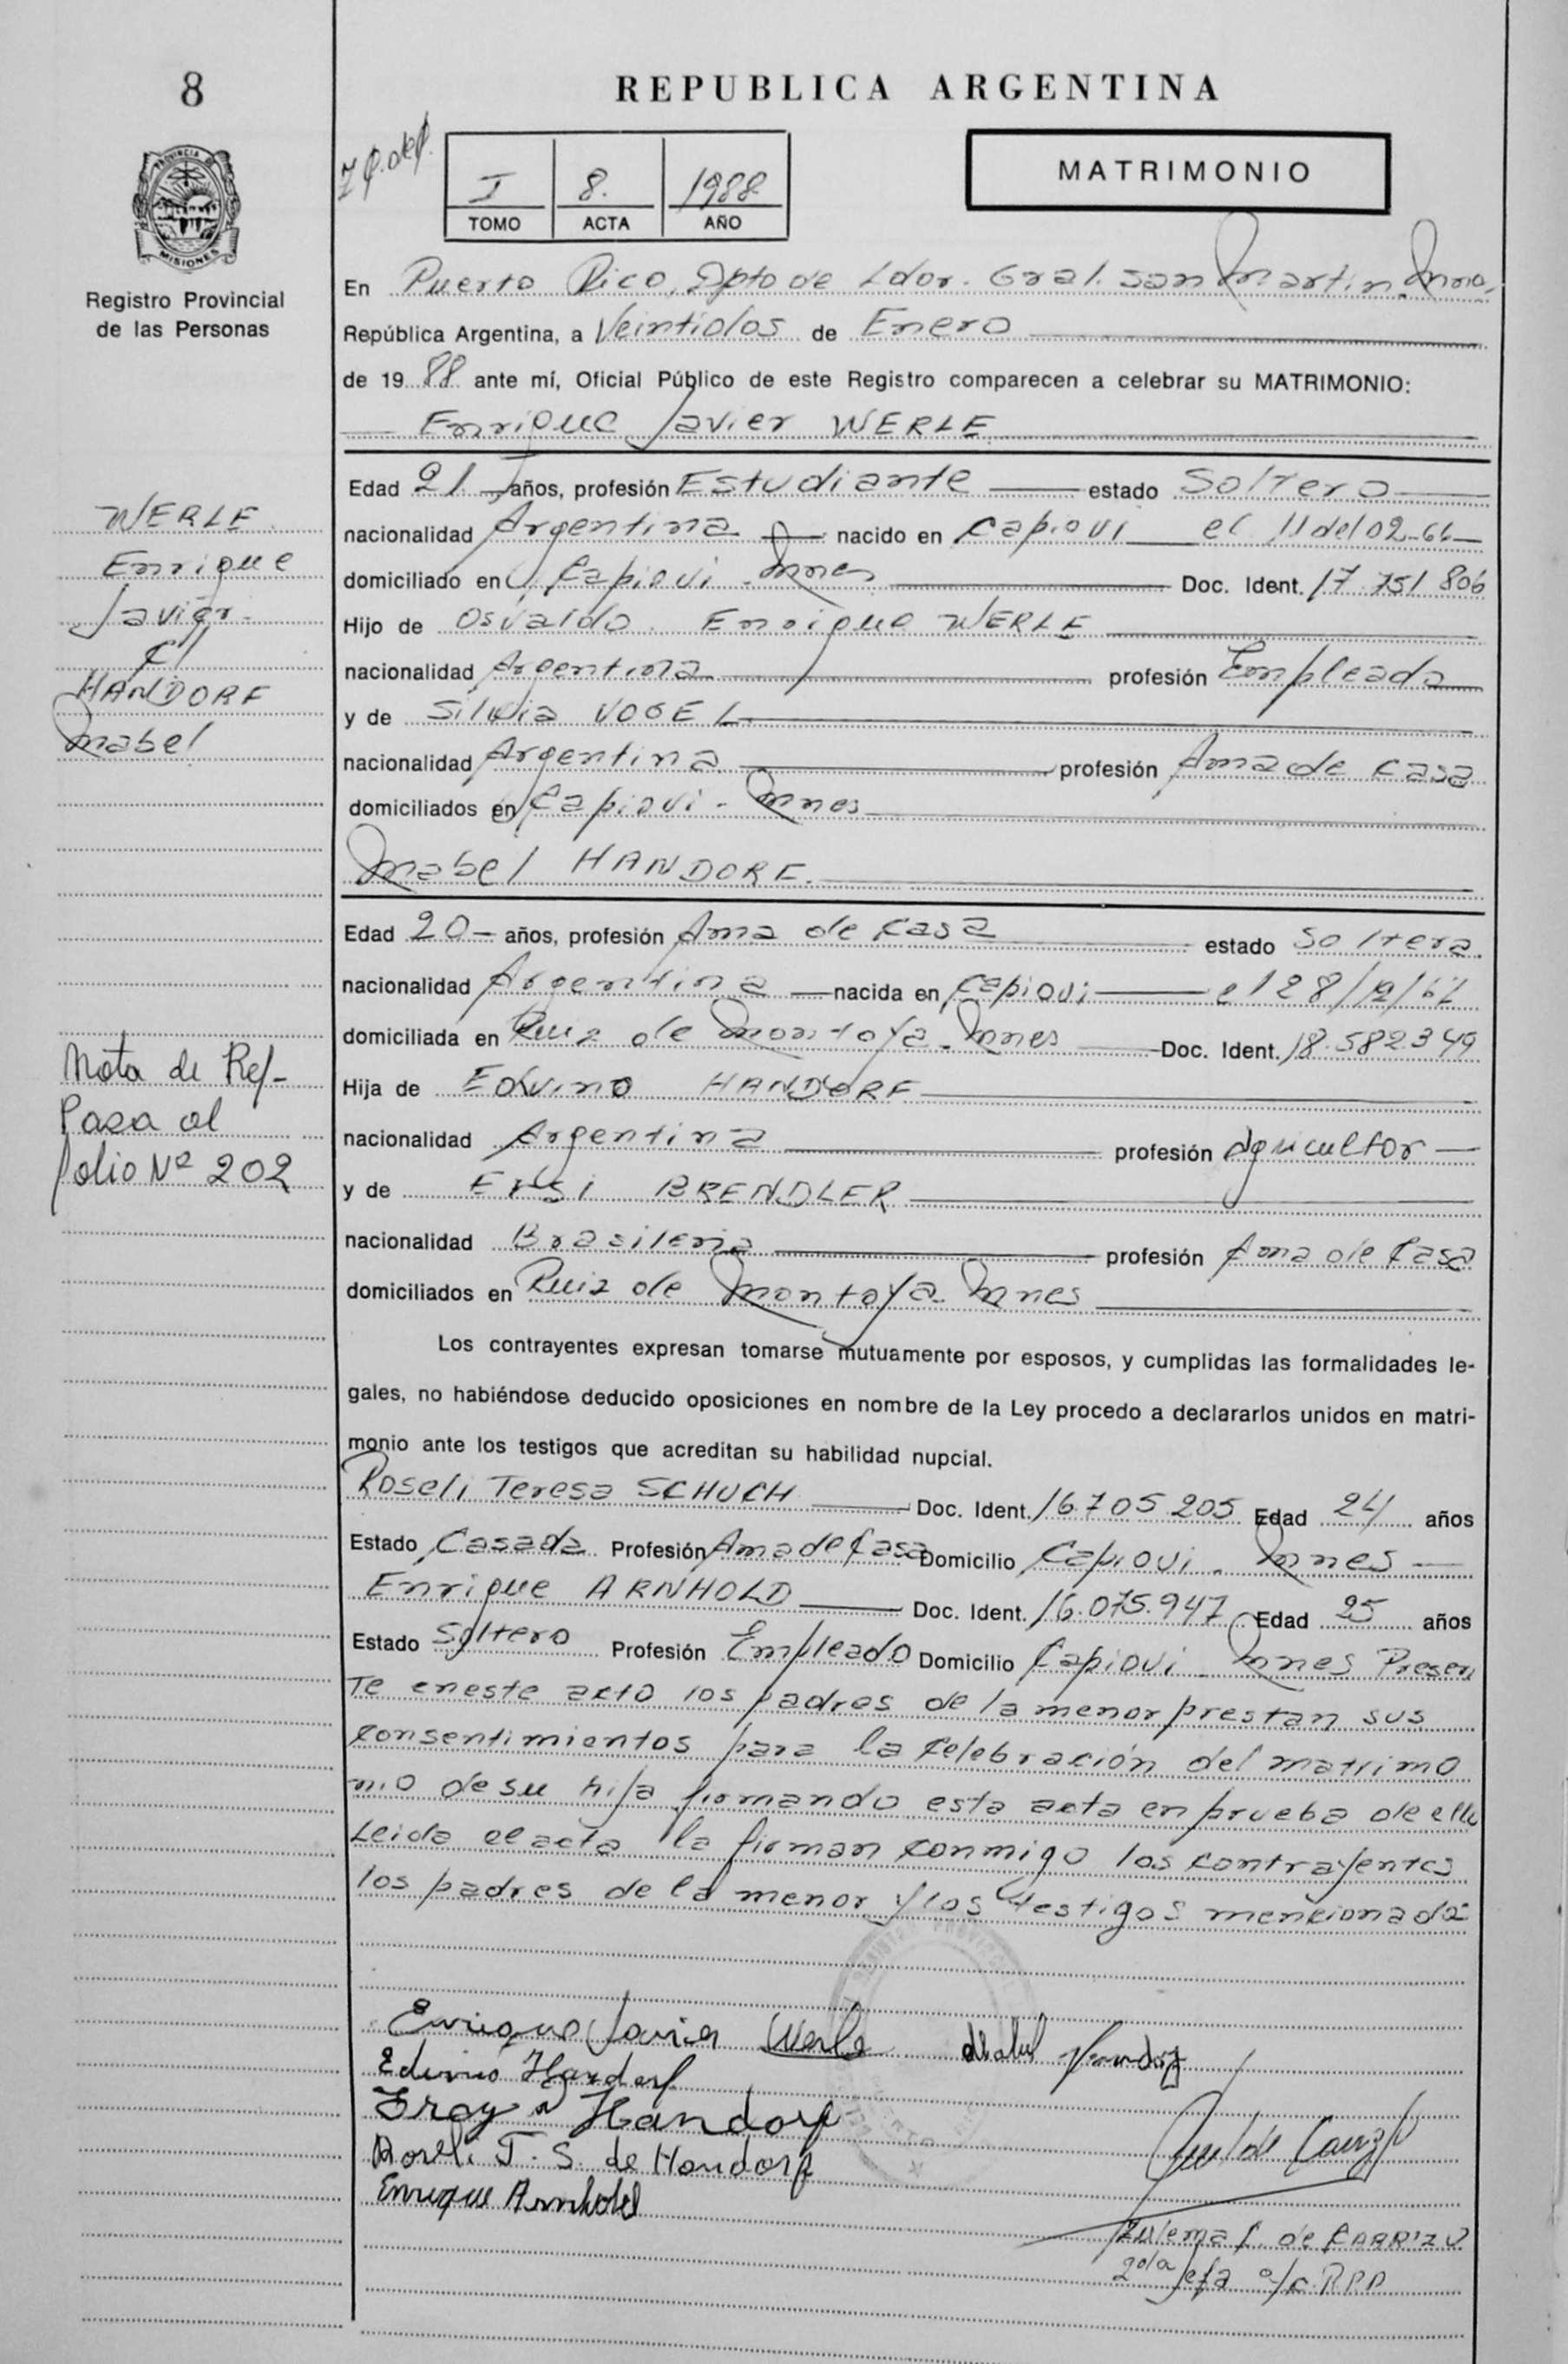 8
REPUBLICA ARGENTINA
MATRIMONIO
I 8. 1988
TOMO ACTA AÑO
PROVINCIA DE
MISIONES
Registro Provincial
de las Personas
En Puerto Rico, Dpto de Ldor. Gral. San Martin. Mnes,
República Argentina, a Veintidos de Enero
de 1988 ante mí, Oficial Público de este Registro comparecen a celebrar su MATRIMONIO:
Enrique Javier WERLE
Edad 21 años, profesión Estudiante estado Soltero
nacionalidad Argentina nacido en Capiovi el 11 del 02-66
domiciliado en Capiovi - Mnes Doc. Ident. 17.751.806
Hijo de Osvaldo Enrique WERLE
nacionalidad Argentina profesión Empleado
y de Silvia VOGEL
nacionalidad Argentina profesión Ama de Casa
domiciliados en Capiovi - Mnes
Mabel HANDORF.
Edad 20 - años, profesión Ama de Casa estado Soltera.
nacionalidad Argentina nacida en Capiovi el 28/12/67
domiciliada en Ruiz de Montoya - Mnes Doc. Ident. 18.582.349
Hija de Edvino HANDORF
nacionalidad Argentina profesión Agricultor
y de BRENDLER
nacionalidad Brasileña profesión Ama de Casa
domiciliados en Ruiz de Montoya - Mnes
Los contrayentes expresan tomarse mutuamente por esposos, y cumplidas las formalidades le-
gales, no habiéndose deducido oposiciones en nombre de la Ley procedo a declararlos unidos en matri-
monio ante los testigos que acreditan su habilidad nupcial.
Roseli Teresa SCHUCH Doc. Ident. 16.705.205 Edad 24 años
Estado Casada Profesión Ama de Casa Domicilio Capiovi - Mnes
Enrique ARNHOLD Doc. Ident. 16.075.947 Edad 25 años
Estado Soltero Profesión Empleado Domicilio Capiovi - Mnes Presen
Te en este acto los padres de la menor prestan sus
consentimientos para la celebración del matrimo
nio de su hija firmando esta acta en prueba de ello
Leida el acta la firman conmigo los contrayentes
los padres de la menor y los testigos mencionado
WERLE
Enrique
Javier
C/
HANDORF
Mabel
Nota de Ref-
Pasa al
folio Nº 202
Enrique Javier Werle Mabel Handorf
Edvino Handorf
Handorf
Roseli T. S. de Handorf
Enrique Arnhold
Zulema C. de CARRIZO
2da Jefa a/c. RPP